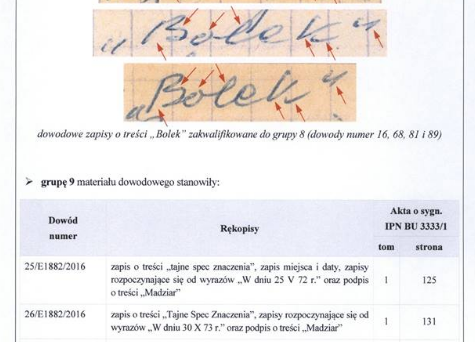 „Bolek"
„Bolek"
dowodowe zapisy o treści „Bolek" zakwalifikowane do grupy 8 (dowody numer 16, 68, 81 i 89)
➢ grupę 9 materiału dowodowego stanowiły:
Dowód numer
Rękopisy
Akta o sygn.
IPN BU 3333/1
tom
strona
25/E1882/2016
zapis o treści „tajne spec znaczenia", zapis miejsca i daty, zapisy
rozpoczynające się od wyrazów „W dniu 25 V 72 r." oraz podpis
o treści „Madziar"
1
125
26/E1882/2016
zapis o treści „Tajne Spec Znaczenia", zapisy rozpoczynające się od
wyrazów „W dniu 30 X 73 r." oraz podpis o treści „Madziar"
1
131